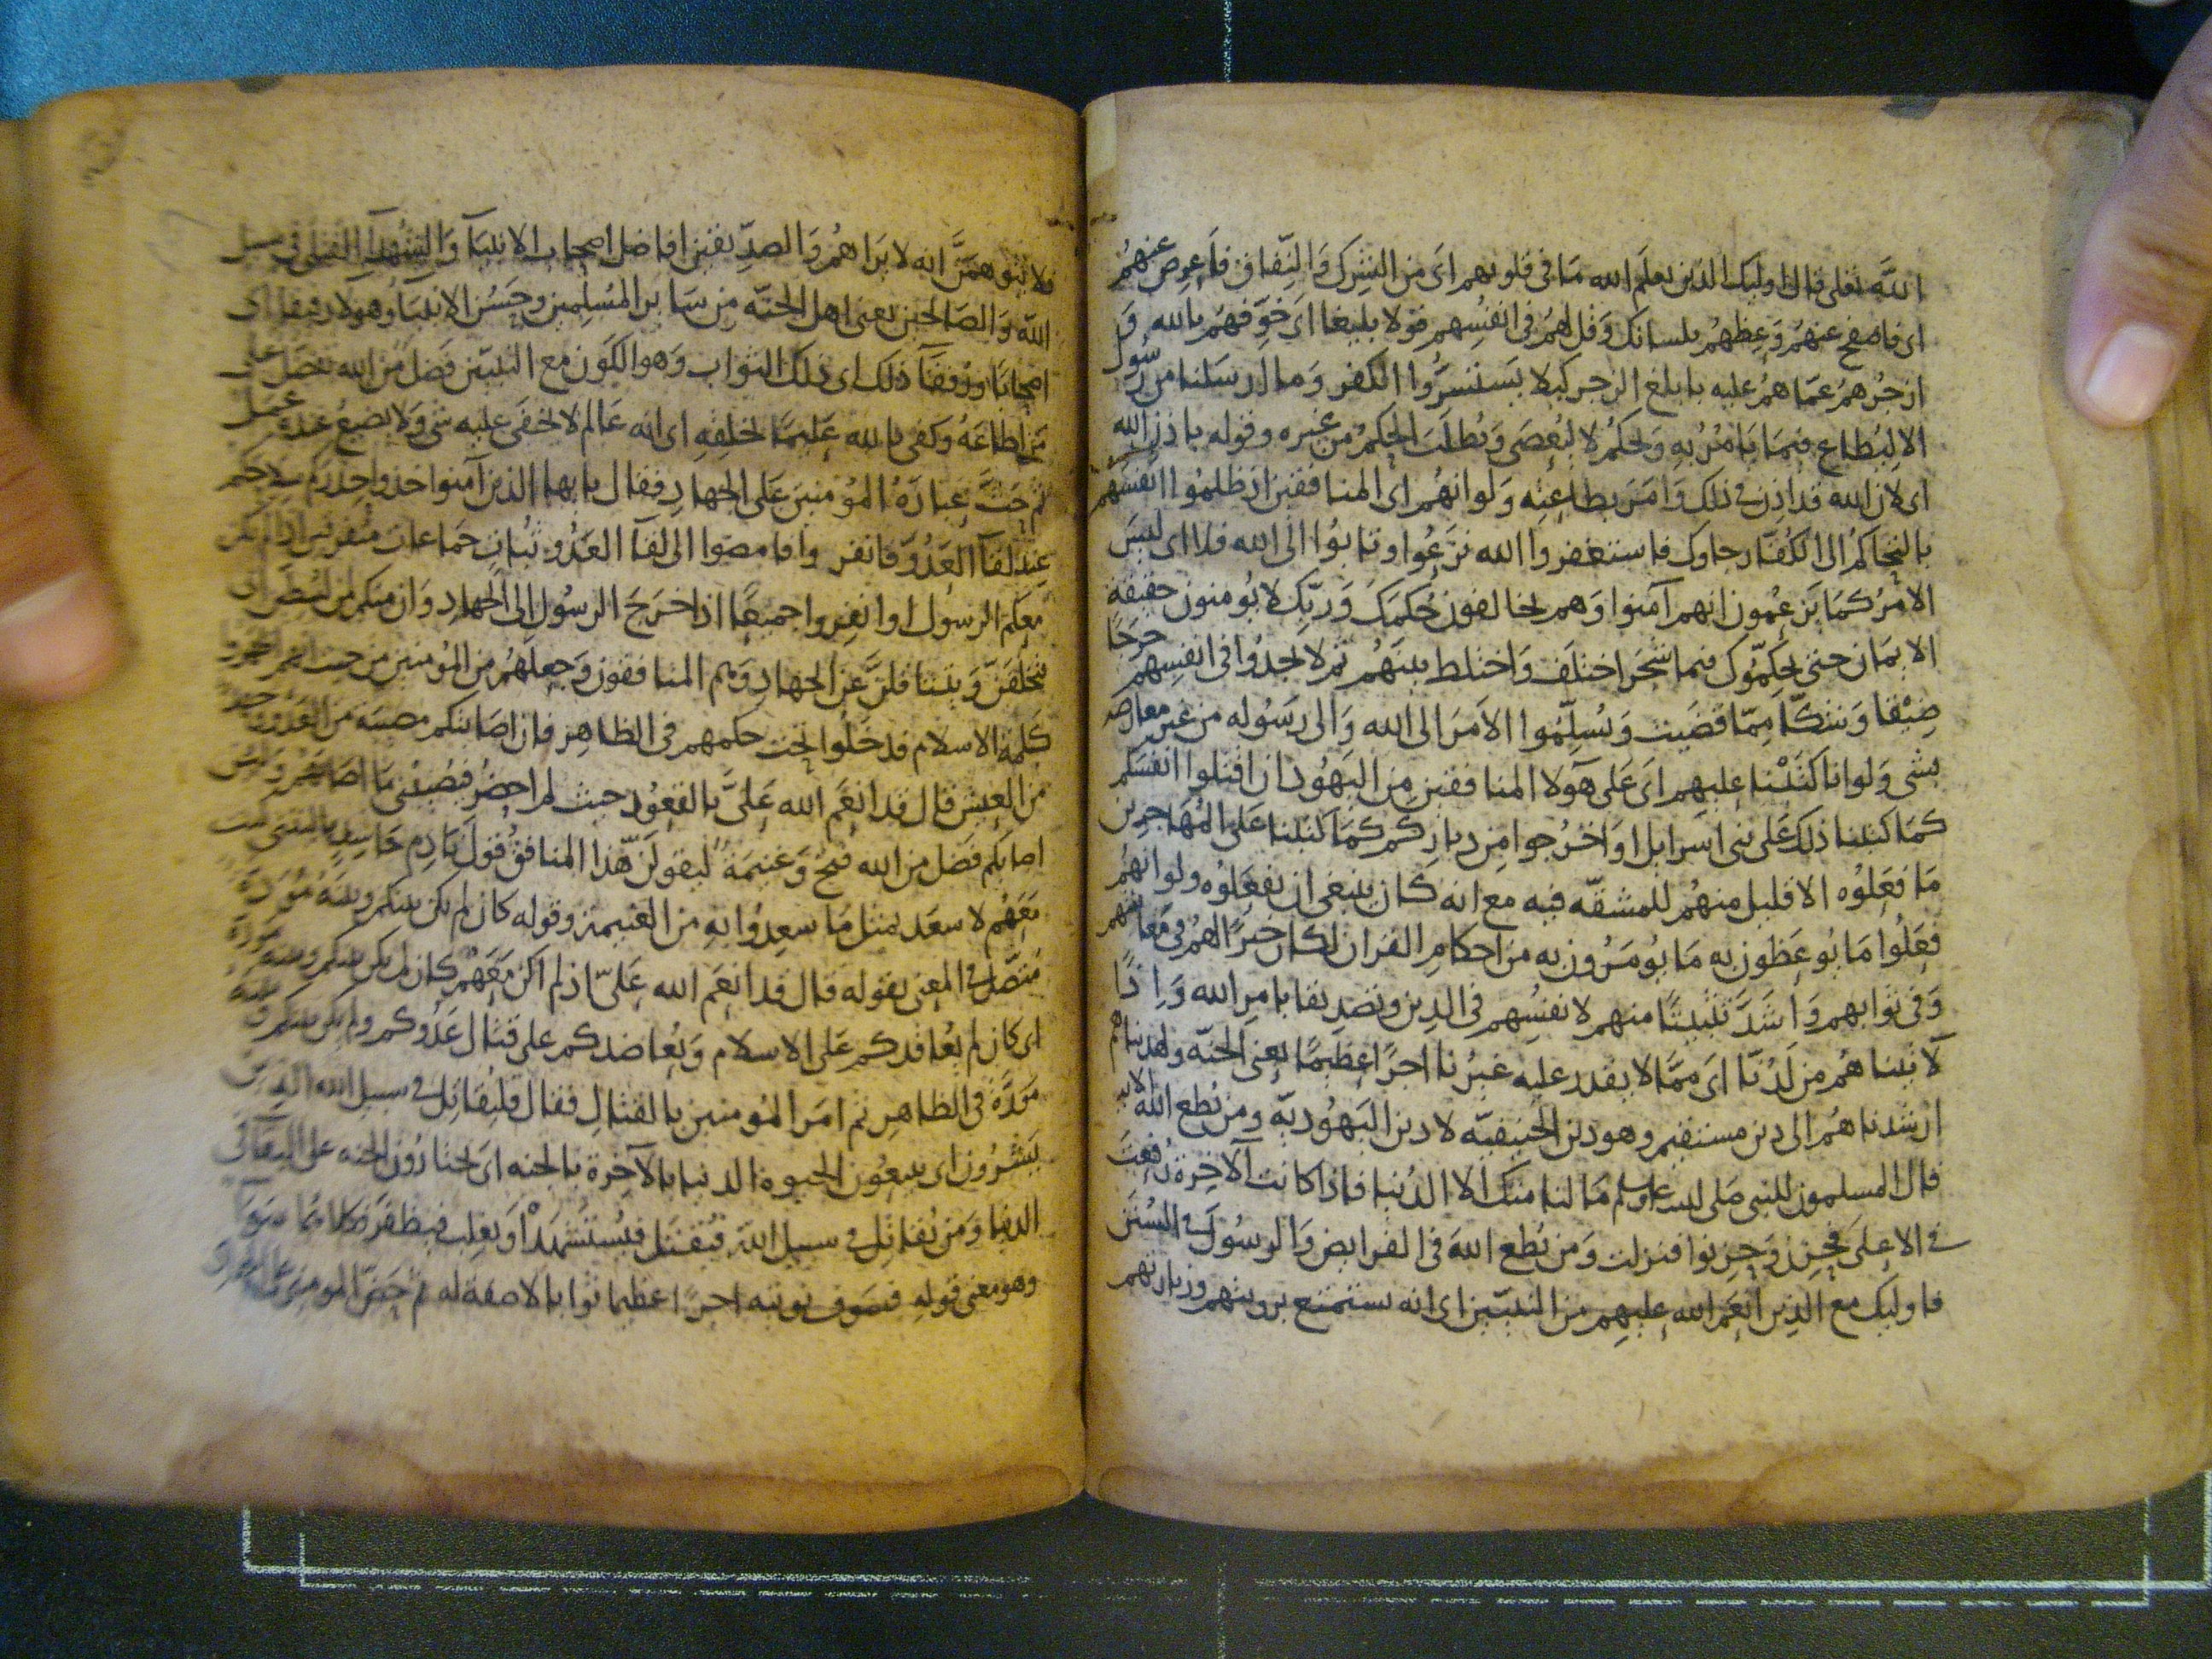 الله تعلى قال اوليك الذين يعلم الله ما فى قلوبهم اى من الشرك والنفاق فاعرض عنهم
اى فاصفح عنهم وعظهم بلسانك وقل لهم فى انفسهم قولا بليغا اى خوفهم بالله و
ازجرهم عما هم عليه بابلغ الزجر كيلا يستسروا الكفر وما ارسلنا من رسول
الا ليطاع فيما يامر به ويحكم لا ليعصى ويطلب الحكم من غيره وقوله باذن الله
اى لان الله قد اذن فى ذلك وامر بطاعته ولو انهم اى المنافقين اذ ظلموا انفسهم
بالتحاكم الى الكفار جاوك فاستغفروا الله نزعوا وتابوا الى الله فلا اى ليس
الامر كما يزعمون انهم آمنوا وهم يخالفون حكمك وربك لا يومنون حقيقة
الايمان حتى يحكموك فيما شجر اختلف واختلط بينهم ثم لا يجدوا فى انفسهم حرجا
ضيقا وشكا مما قضيت ويسلموا الامر الى الله والى رسوله من غير معارضه
بشى ولو انا كتبنا عليهم اى على هولا المنافقين من اليهود ان اقتلوا انفسكم
كما كتبنا ذلك على بنى اسرايل او اخرجوا من دياركم كما كتبنا على المهاجرين
ما فعلوه الا قليل منهم للمشقة فيه مع انه كان ينبغى ان يفعلوه ولو انهم
فعلوا ما يوعظون به ما يومرون به من احكام القران لكان خيرا لهم فى معايشهم
وفى ثوابهم واشد تثبيتا منهم لانفسهم فى الدين وتصديقا بامر الله واذا
لاتيناهم من لدنا اى مما لا يقدر عليه غيرنا اجرا عظيما يعنى الجنة ولهديناهم
ارشدناهم الى دين مستقيم وهو دين الحنيفية لا دين اليهودية ومن يطع الله الاية
قال المسلمون للنبى صلى الله عليه وسلم ما لنا منك الا الدنيا فاذا كانت الاخرة رفعت
فى الاعلى فحزن وحزنوا فنزلت ومن يطع الله فى الفرايض والرسول فى السنن
فاوليك مع الذين انعم الله عليهم من النبيين اى انه يستمتع برويتهم وزيارتهم
فلا يتوهمن انه لا يراهم والصديقين افاضل اصحاب الانبيا والشهدآ القتلى فى سبيل
الله والصالحين يعنى اهل الجنة من ساير المسلمين وحسن الانبيا وهولا رفيقا اى
اصحابا ورفقآ ذلك اى ذلك الثواب وهو الكون مع النبيين فضل من الله تفضل على
من اطاعه وكفى بالله عليما بخلقه اى انه عالم لا يخفى عليه شى ولا يضيع عنده عمل
ثم حث عباده المومنين على الجهاد فقال يا يها الذين آمنوا خذوا حذركم سلاحكم
عند لقآ العدو فانفروا فامضوا الى لقآ العدو ثبات جماعات متفرقين اذا لم يكن
معكم الرسول او انفروا جميعا اذا خرج الرسول الى الجهاد وان منكم لمن ليبطئن اى
يتخلفن ويتثاقلن عن الجهاد وهم المنافقون وجعلهم من المومنين من حيث انهم اظهروا
كلمة الاسلام فدخلوا تحت حكمهم فى الظاهر فان اصابتكم مصيبه من العدو
من العيش قال قد انعم الله على بالقعود حيث لم احضر فيصيبنى ما اصابهم ولين
اصابكم فضل من الله فتح وغنيمة ليقولن هذا المنافق قول نادم حاسد ياليتنى كنت
معهم لاسعد بمثل ما سعدوا به من الغنيمة وقوله كان لم يكن بينكم وبينه مودة
متصل فى المعنى بقوله قال قد انعم الله على اذ لم اكن معهم كان لم يكن بينكم وبينه مودة
اى كان لم يعاقدكم على الاسلام ويعاضدكم على قتال عدوكم ولم يكن بينكم وبينه
مودة فى الظاهر ثم امر المومنين بالقتال فقال فليقاتل فى سبيل الله الذين
يشرون اى يبيعون الحيوة الدنيا بالآخرة بالجنه اى يختارون الجنه على البقآ فى
الدنيا ومن يقاتل فى سبيل الله فيقتل فيستشهد او يغلب فيظفر فكلاهما سوآ
وهو معنى قوله فسوف نوتيه اجرا عظيما ثوابا لا صفة له ثم حض المومنين على